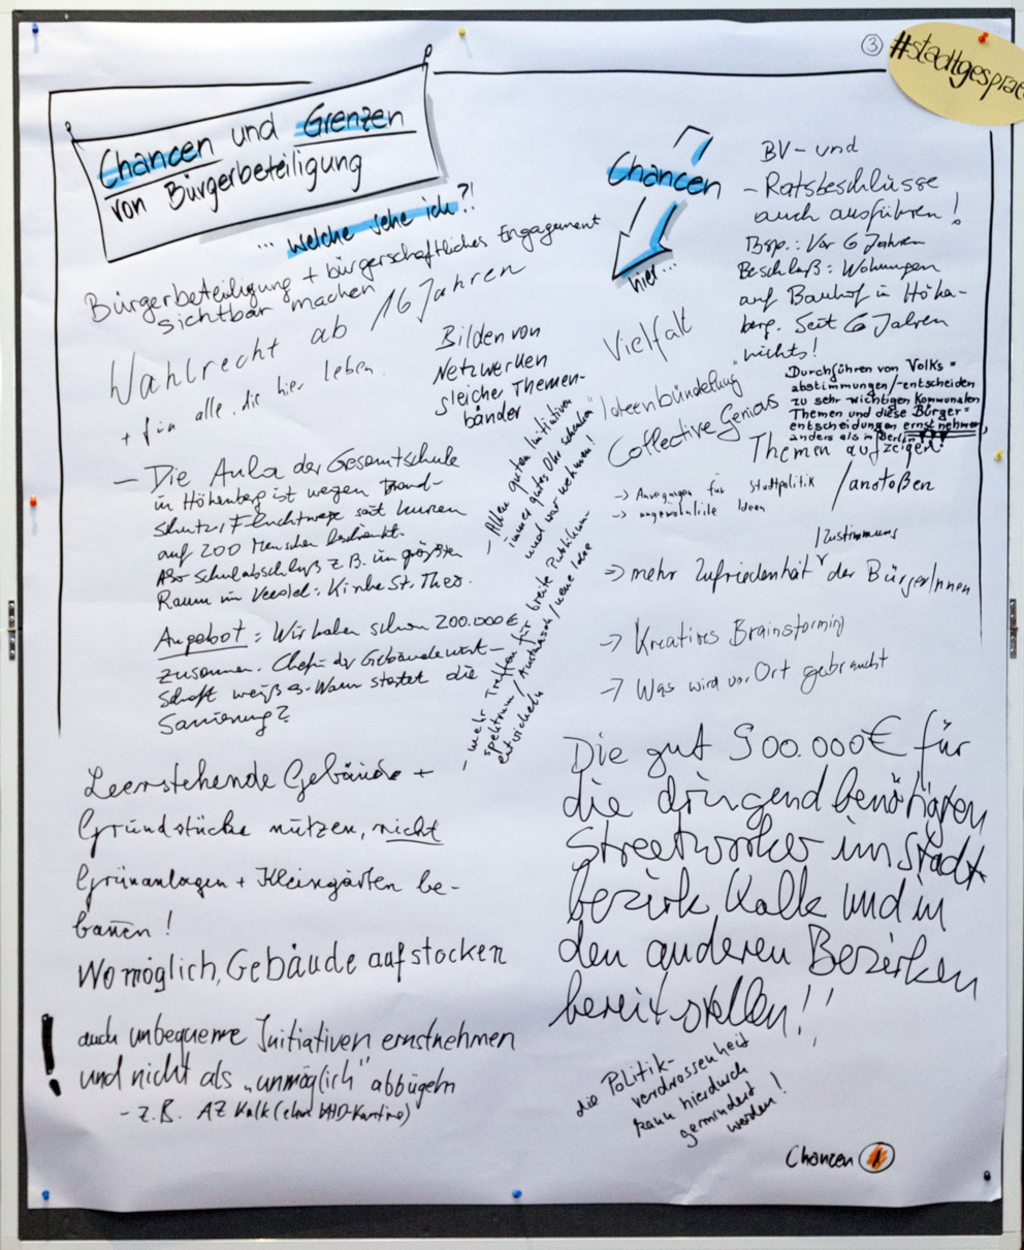 ③
#stadtgespräc
Chancen und Grenzen
von Bürgerbeteiligung
... welche sehe ich?!
Bürgerbeteiligung + bürgerschaftliches Engagement
sichtbar machen
Wahlrecht ab 16 Jahren
+ für alle, die hier leben.
Bilden von
Netzwerken
gleicher Themen-
bänder
- Die Aula der Gesamtschule
in Höhenberg ist wegen Brand-
schutz/Fluchtwege seit kurzem
auf 200 Menschen beschränkt.
Also Schulabschluß z.B. im größten
Raum im Veedel: Kirche St. Theo.
Angebot: Wir haben schon 200.000€
zusammen. Chefin der Gebäudewirt-
schaft weiß es. Wann startet die
Sanierung?
- Allen guten Initiativen
immer gutes Ohr schenken
und wahrnehmen!
- mehr Treffen für breite Publikum-
spektrum/Austausch/neue Idee
entwickeln
Leerstehende Gebäude +
Grundstücke nutzen, nicht
Grünanlagen + Kleingärten be-
bauen!
Womöglich, Gebäude aufstocken
! auch unbequeme Initiativen ernstnehmen
und nicht als "unmöglich" abbügeln
- z.B. AZ Kalk (ehem. KHD-Kantine)
Chancen
hier...
BV- und
- Ratsbeschlüsse
auch ausführen!
Bsp.: Vor 6 Jahren
Beschluß: Wohnungen
auf Bauhof in Höhen-
berg. Seit 6 Jahren
nichts!
Durchführen von Volks=
abstimmungen/-entscheiden
zu sehr wichtigen Kommunalen
Themen und diese Bürger=
entscheidungen ernst nehmen,
anders als in Berlin!!!
Vielfalt
"Ideenbündelung"
Collective Genious
Themen aufzeigen!
/anstoßen
-> Anregungen für Stadtpolitik
-> ungewöhnliche Ideen
/Zustimmung
-> mehr Zufriedenheit der BürgerInnen
-> Kreatives Brainstorming
-> Was wird vor Ort gebraucht
Die gut 900.000€ für
die dringend benötigten
Streetworker im Stadt
bezirk Kalk und in
den anderen Bezirken
bereitstellen!!
die Politik-
verdrossenheit
kann hierdurch
gemindert
werden!
Chancen 1